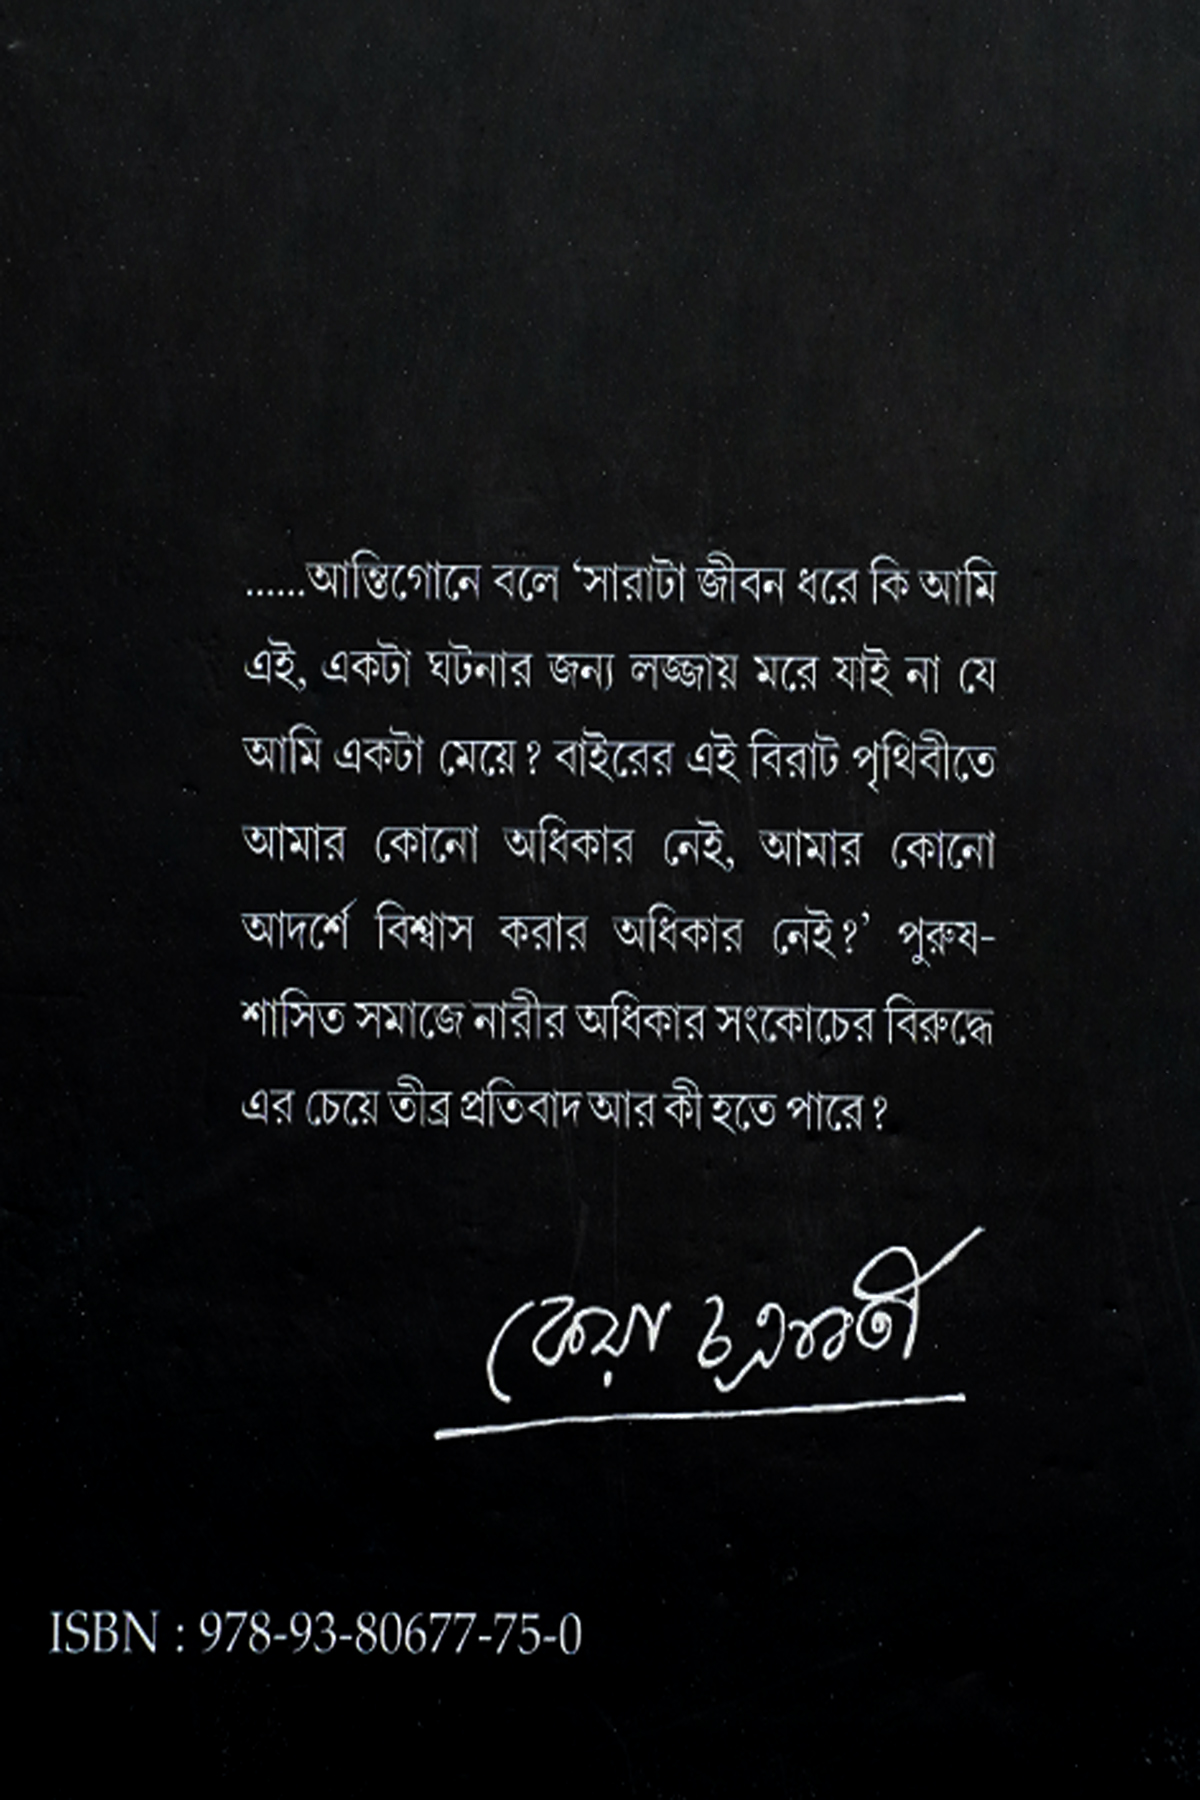 ......আন্তিগোনে বলে ‘সারাটা জীবন ধরে কি আমি
এই, একটা ঘটনার জন্য লজ্জায় মরে যাই না যে
আমি একটা মেয়ে? বাইরের এই বিরাট পৃথিবীতে
আমার কোনো অধিকার নেই, আমার কোনো
আদর্শে বিশ্বাস করার অধিকার নেই?’ পুরুষ-
শাসিত সমাজে নারীর অধিকার সংকোচের বিরুদ্ধে
এর চেয়ে তীব্র প্রতিবাদ আর কী হতে পারে?
কেয়া চক্রবর্তী
ISBN : 978-93-80677-75-0